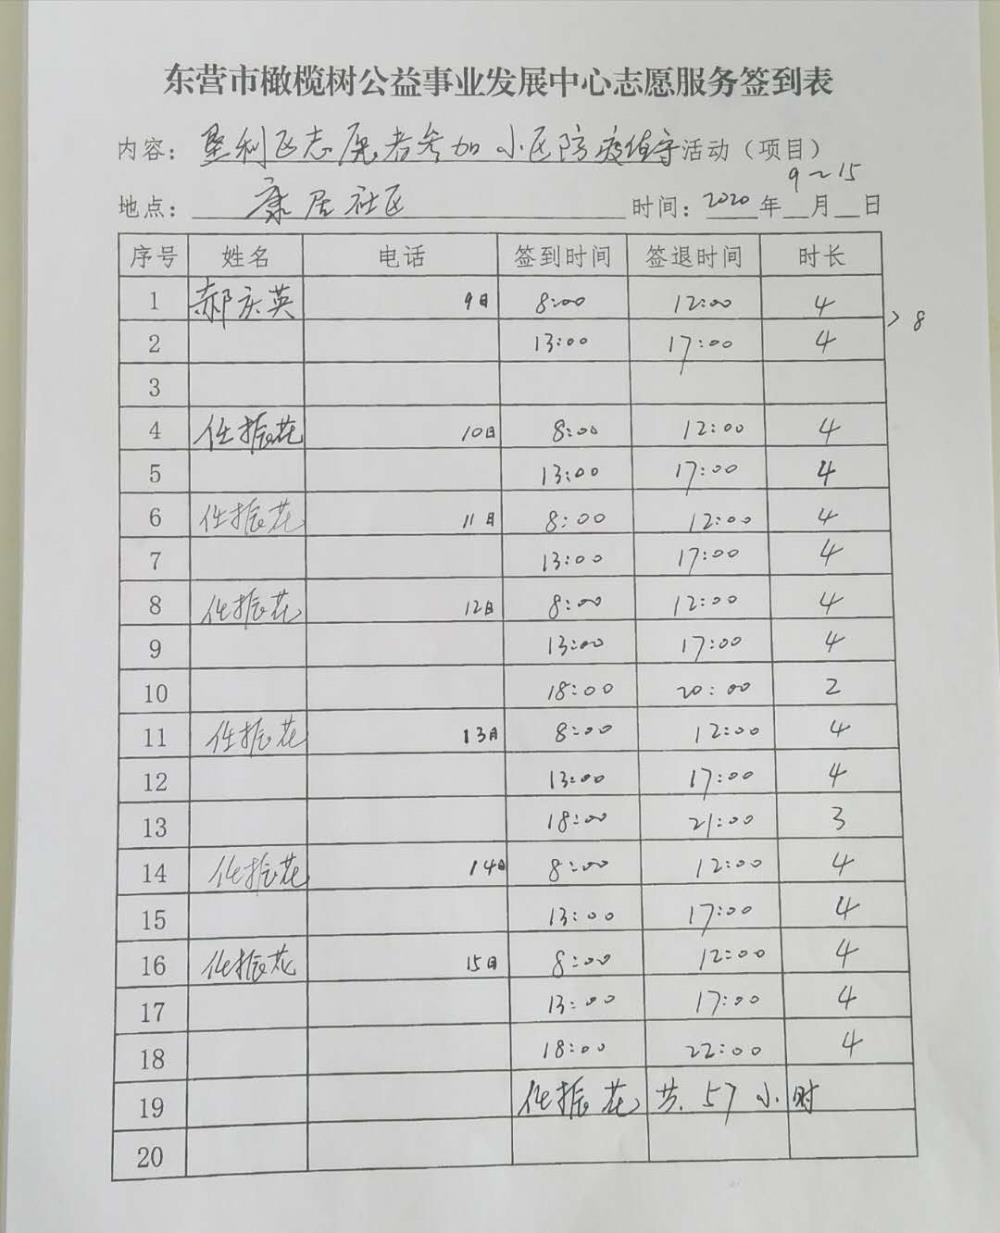 东营市橄榄树公益事业发展中心志愿服务签到表
内容：垦利区志愿者参加小区防疫值守活动（项目）
地点：康居社区 时间：2020年9～15月 日
序号 姓名 电话 签到时间 签退时间 时长
1 郝庆英 9日 8:00 12:00 4
2 13:00 17:00 4 > 8
3
4 任振花 10日 8:00 12:00 4
5 13:00 17:00 4
6 任振花 11日 8:00 12:00 4
7 13:00 17:00 4
8 任振花 12日 8:00 12:00 4
9 13:00 17:00 4
10 18:00 20:00 2
11 任振花 13日 8:00 12:00 4
12 13:00 17:00 4
13 18:00 21:00 3
14 任振花 14日 8:00 12:00 4
15 13:00 17:00 4
16 任振花 15日 8:00 12:00 4
17 13:00 17:00 4
18 18:00 22:00 4
19 任振花 共57小时
20